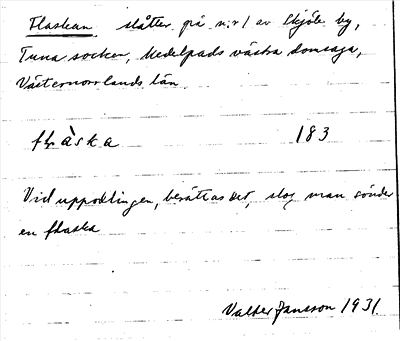 Flaskan slåtter på n:r 1 av Skjöle by,
Tuna socken, Medelpads västra domsaga,
Västernorrlands län
flàska 183
Vid uppodlingen, berättas det, slog man sönder
en flaska
Valter Jansson 1931